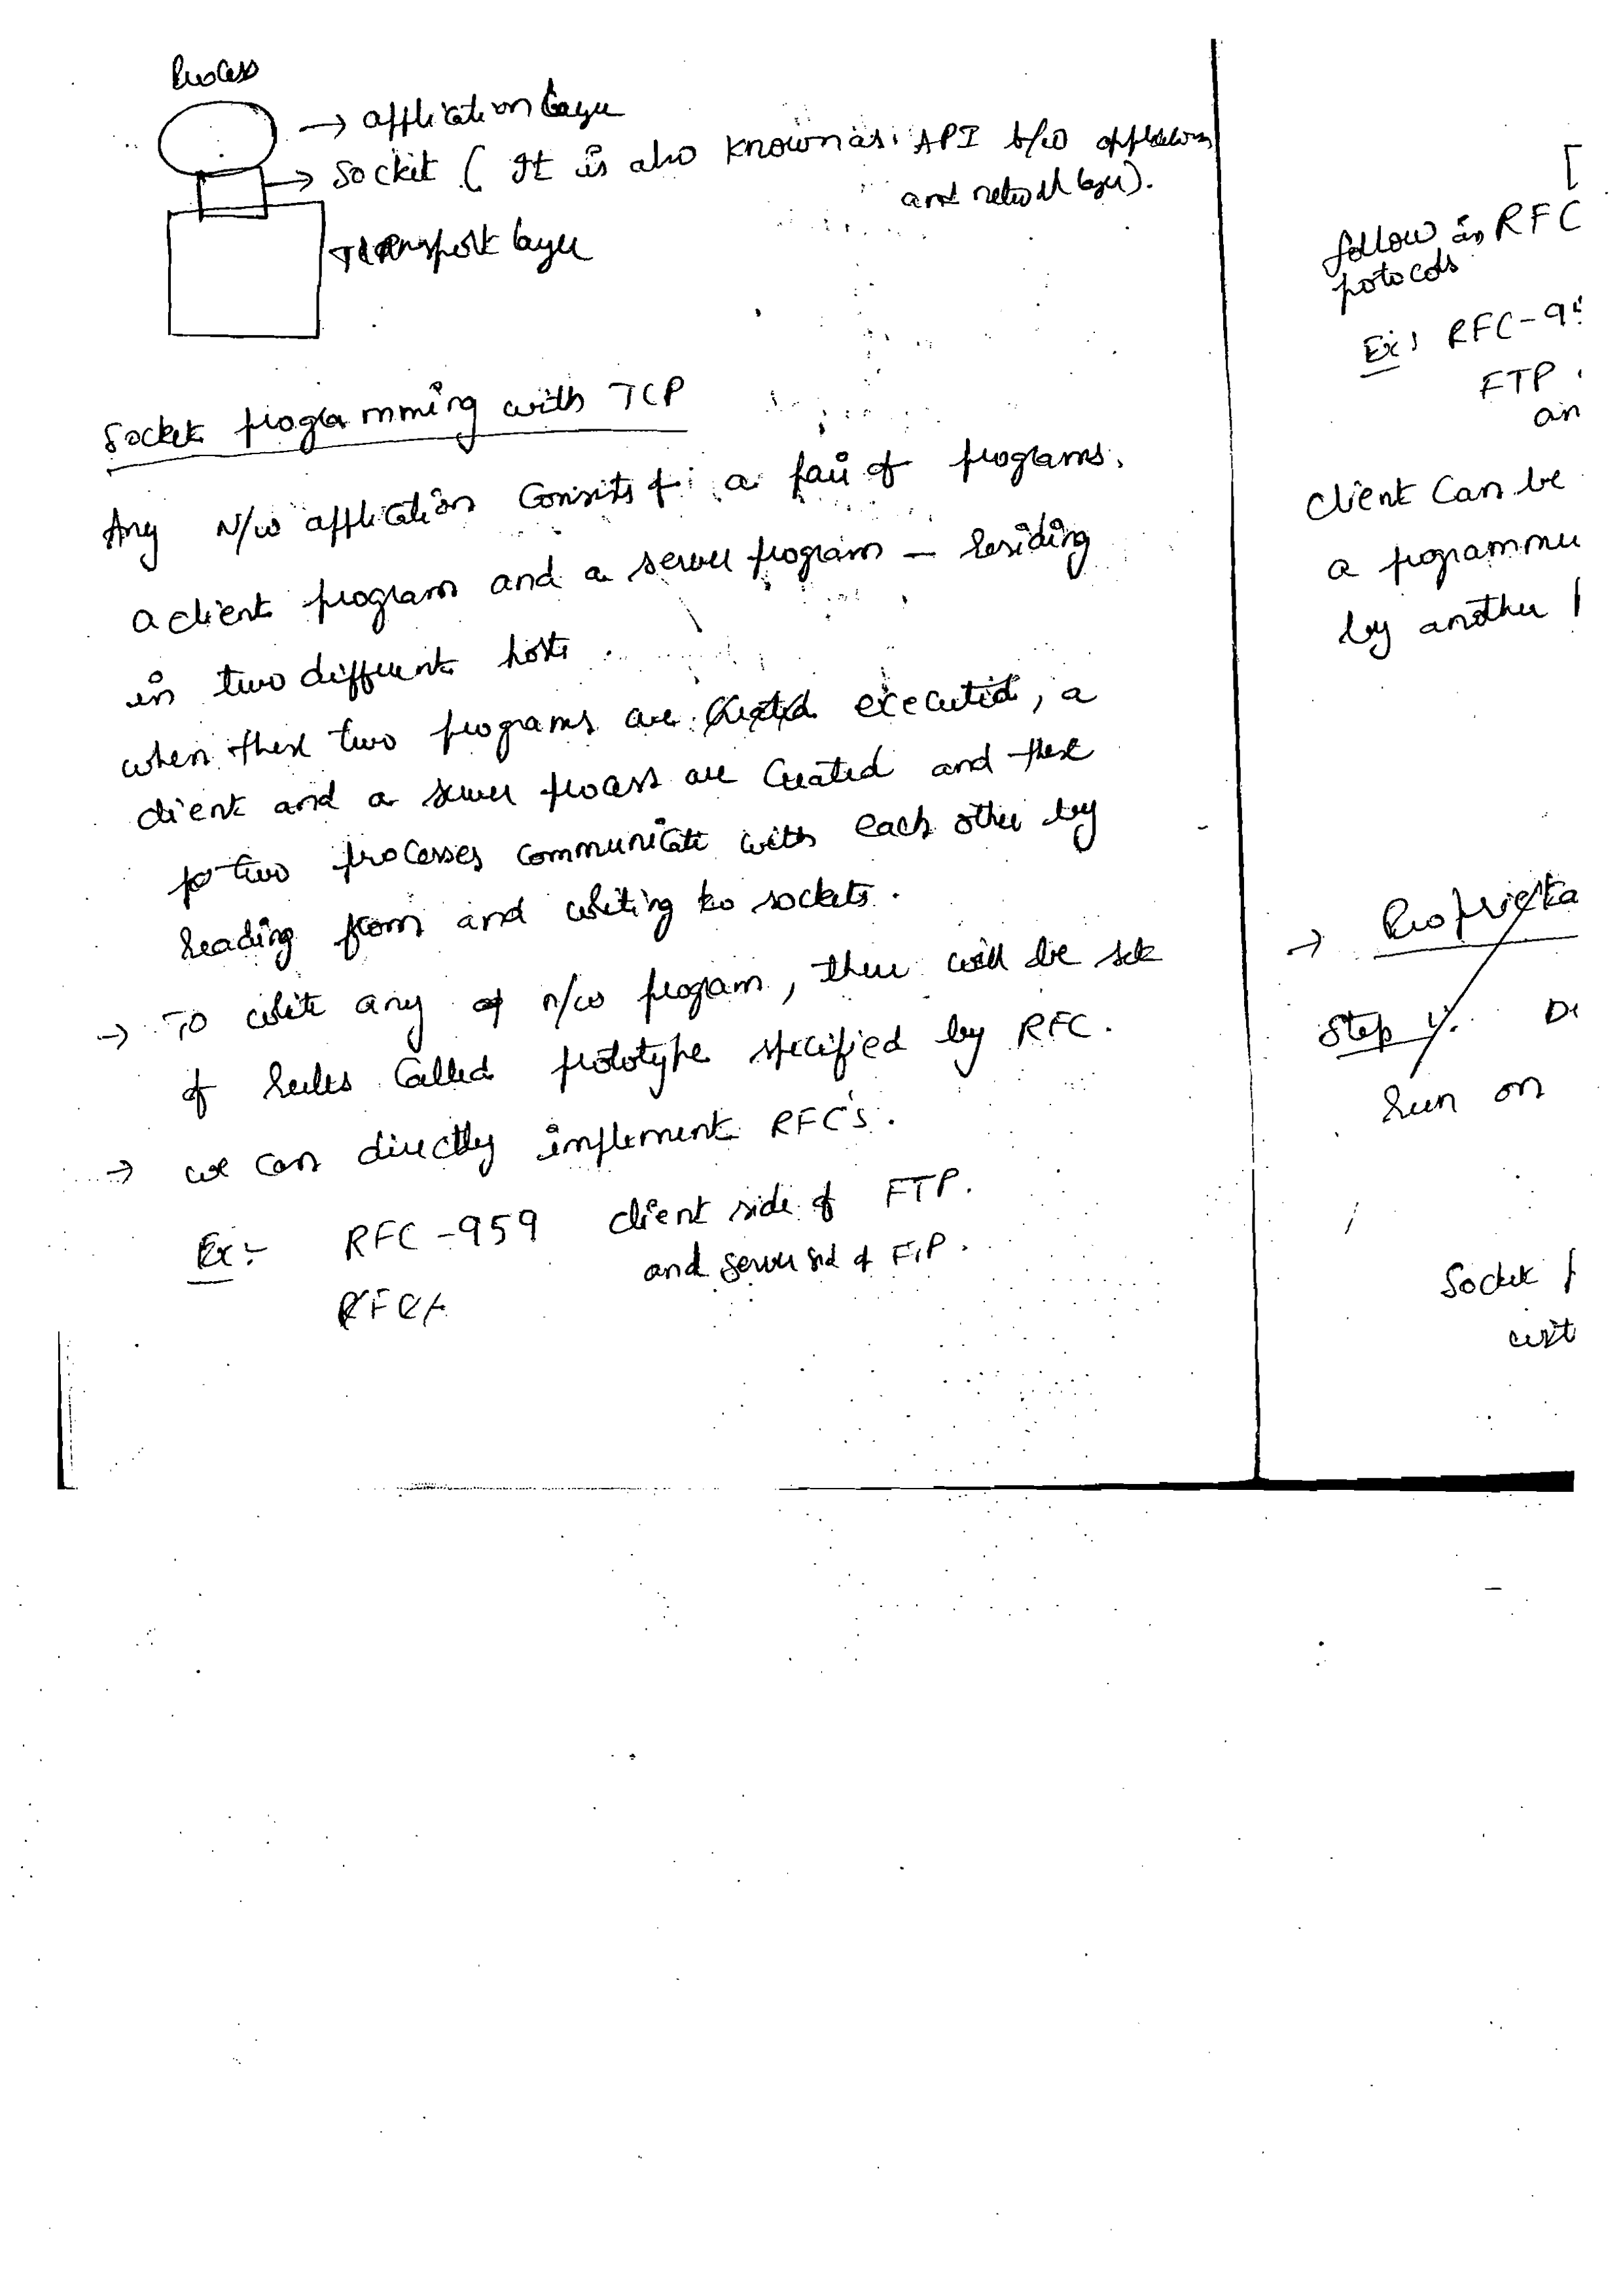 Process
→ application layer
→ Socket ( It is also known as API b/w application
and network layer).
Transport layer
Socket programming with TCP
Any N/w application consists of a pair of programs.
a client program and a server program — residing
in two different hosts.
when these two programs are created executed, a
client and a server process are created and these
two processes communicate with each other by
reading from and writing to sockets.
→ To write any of n/w program, there will be set
of rules called prototype specified by RFC.
→ we can directly implement RFC's.
Ex:- RFC-959 client side of FTP.
and server sid of FTP.
RFC
[
follow in RFC
potocols
Ex: RFC-95
FTP
an
client can be
a programme
by another
→ Proprieta
Step 1:
Run on
Socket p
wit